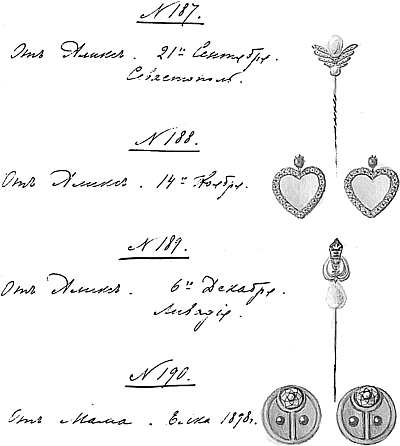 №187.
Отъ Аликсъ. 21го Сентября.
Севастополь.
№188.
Отъ Аликсъ. 14го Ноября.
№189.
Отъ Аликсъ. 6го Декабря.
Ливадія.
№190.
Отъ Мама. Елка 1898г.